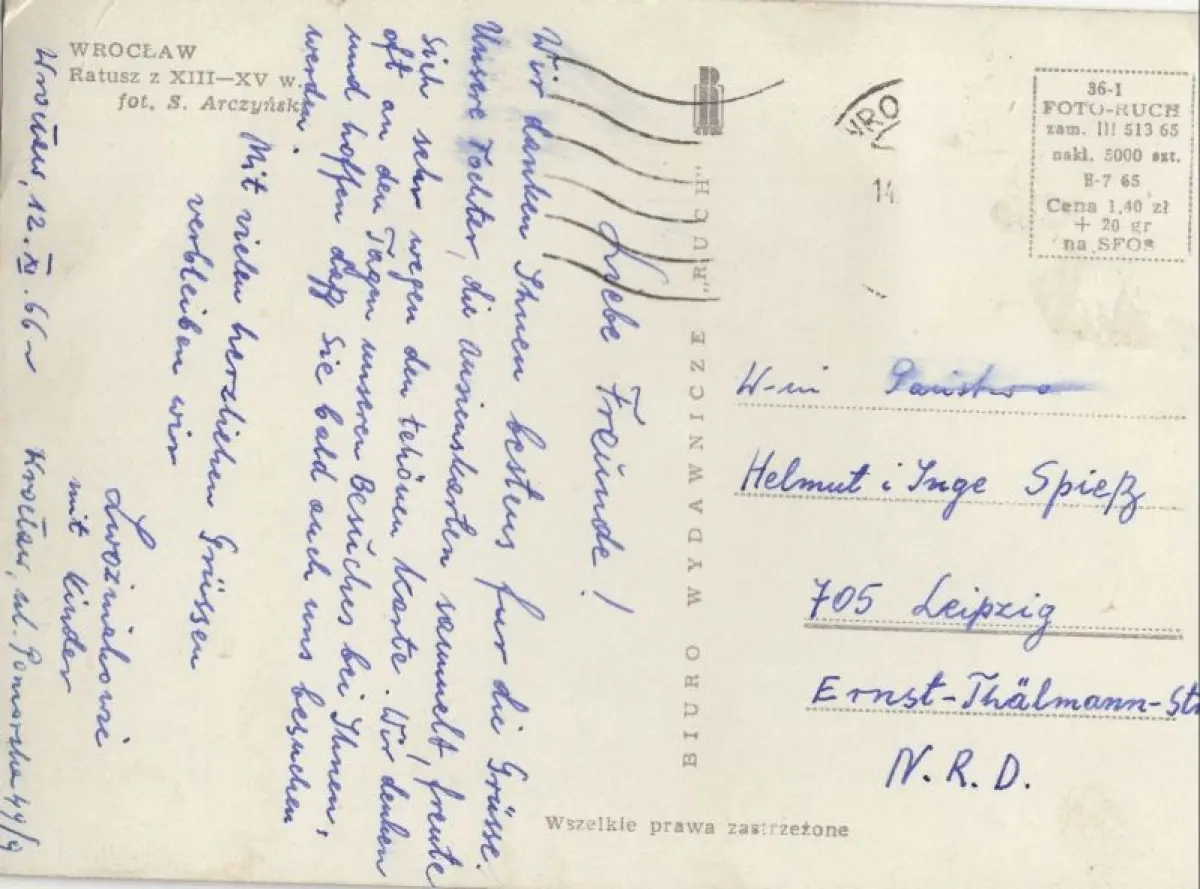 WROCŁAW
Ratusz z XIII—XV w.
fot. S. Arczyński
Wrocław, 12.XI.66 r
Liebe Freunde!
Wir danken Ihnen bestens fur die Grüsse.
Unsere Tochter, die ansienskarten sammelt, freute
sich sehr wegen den tehönen Karte. Wir denken
oft an den Tagen unseren Besuches bei Ihnen,
und hoffen daß Sie bald auch uns besuchen
werden.
Mit vielen herzlichen Grüssen
verbleiben wir
mit Kinder
Wrocław, ul. Pomorska 49/9
BIURO WYDAWNICZE "RUCH"
WRO
14
36-1
FOTO-RUCH
zam. III 513 65
nakł. 5000 szt.
B-7 65
Cena 1,40 zł
+ 20 gr
na SFOS
W-ni Państwo
Helmut i Inge Spieß
705 Leipzig
Ernst-Thälmann-St
N.R.D.
Wszelkie prawa zastrzeżone